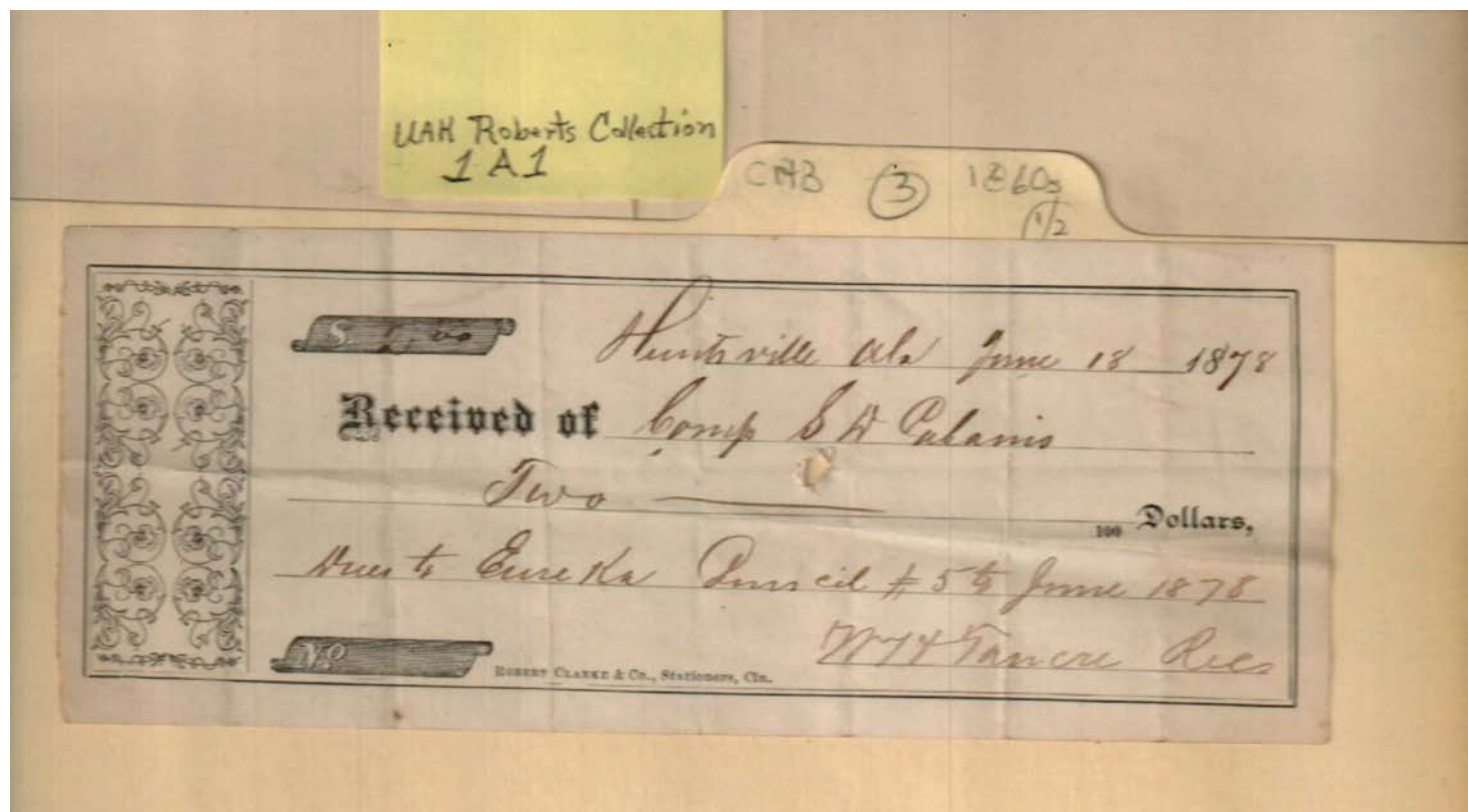 UAH Roberts Collection
1 A 1
CAB 3 1860s
1/2
$ 2.00
Huntsville Ala June 18 1878
Received of Comp S D Cabanis
Two
100 Dollars,
Dues to Eureka Council # 5 to June 1878
No
Rec
ROBERT CLARKE & Co., Stationers, Cin.